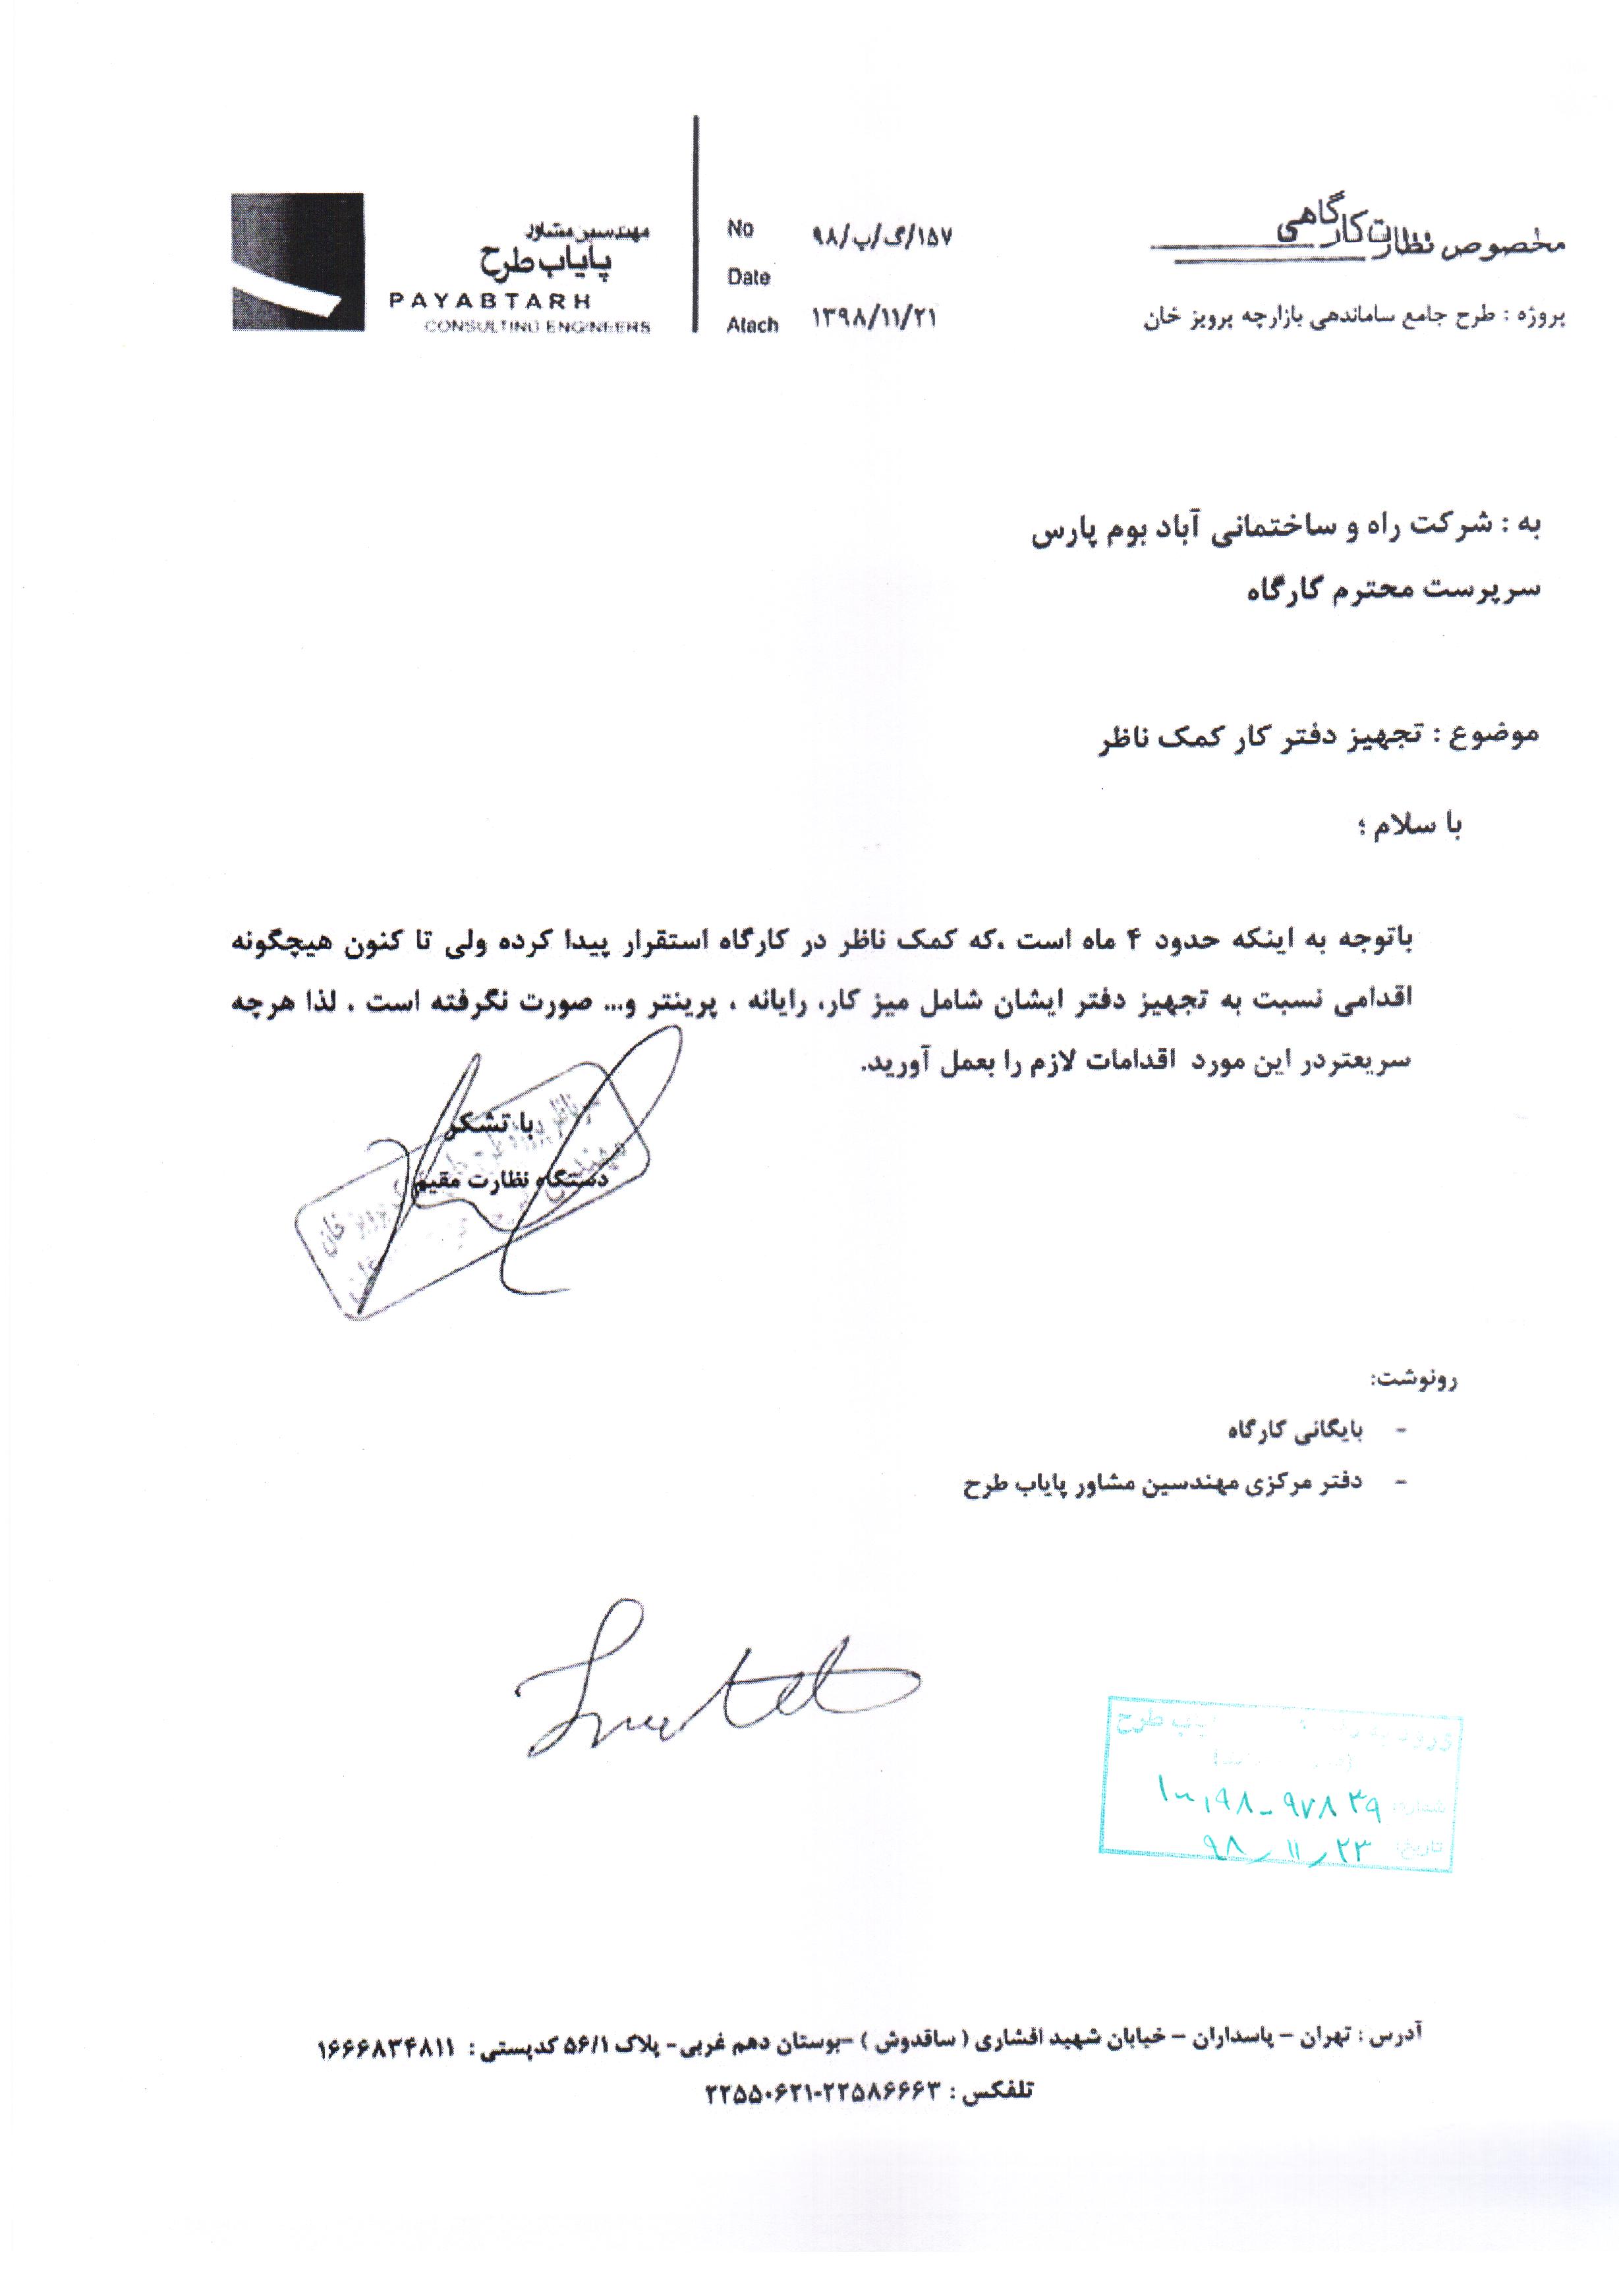 مخصوص نظارت کارگاهی
پروژه : طرح جامع ساماندهی بازارچه پرویز خان
No ۹۸/پ/گ/۱۵۷
Date
Atach ۱۳۹۸/۱۱/۲۱
مهندسین مشاور
پایاب طرح
PAYABTARH
CONSULTING ENGINEERS
به : شرکت راه و ساختمانی آباد بوم پارس
سرپرست محترم کارگاه
موضوع : تجهیز دفتر کار کمک ناظر
با سلام ؛
باتوجه به اینکه حدود ۴ ماه است ،که کمک ناظر در کارگاه استقرار پیدا کرده ولی تا کنون هیچگونه
اقدامی نسبت به تجهیز دفتر ایشان شامل میز کار، رایانه ، پرینتر و... صورت نگرفته است . لذا هرچه
سریعتردر این مورد اقدامات لازم را بعمل آورید.
با تشکر
دستگاه نظارت مقیم
پرویز خان
رونوشت:
- بایگانی کارگاه
- دفتر مرکزی مهندسین مشاور پایاب طرح
طرح
شماره:
تاریخ: ۹۸/۱۱/۲۳
آدرس : تهران – پاسداران – خیابان شهید افشاری ( ساقدوش ) –بوستان دهم غربی- پلاک ۵۶/۱ کدپستی : ۱۶۶۶۸۳۴۸۱۱
تلفکس : ۲۲۵۸۶۶۶۳-۲۲۵۵۰۶۲۱